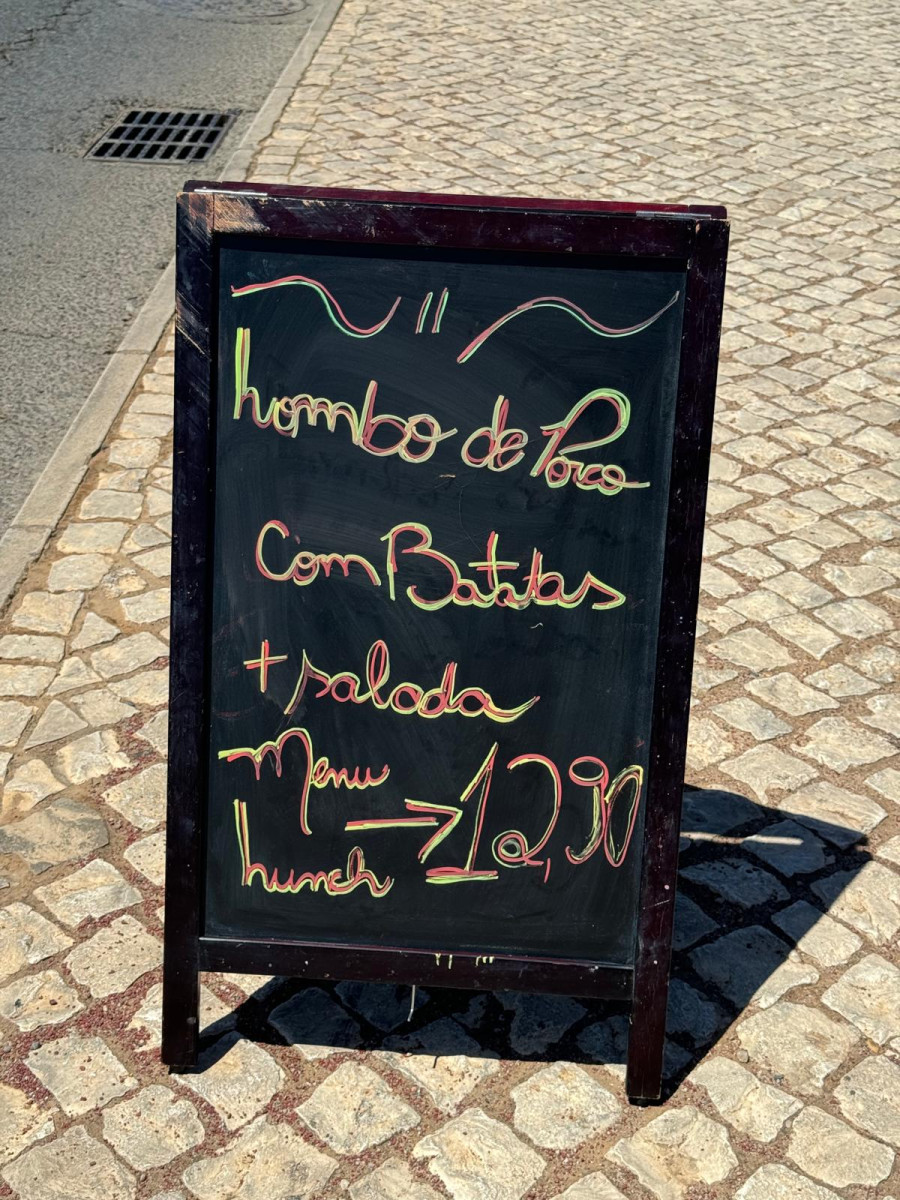 Lombo de Porco
Com Batatas
+ salada
Menu
Lunch → 12,90